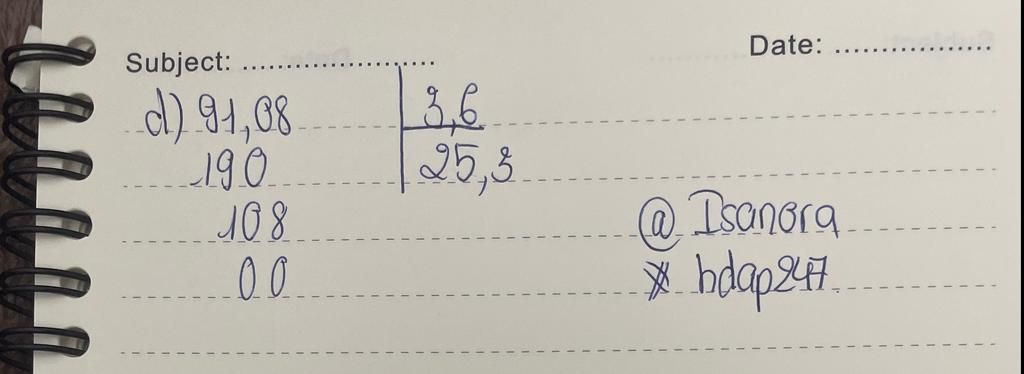 Subject: ...................... Date: .................
d) 91,08 3,6
190 25,3
108 @ Isanora
00 * hdap247